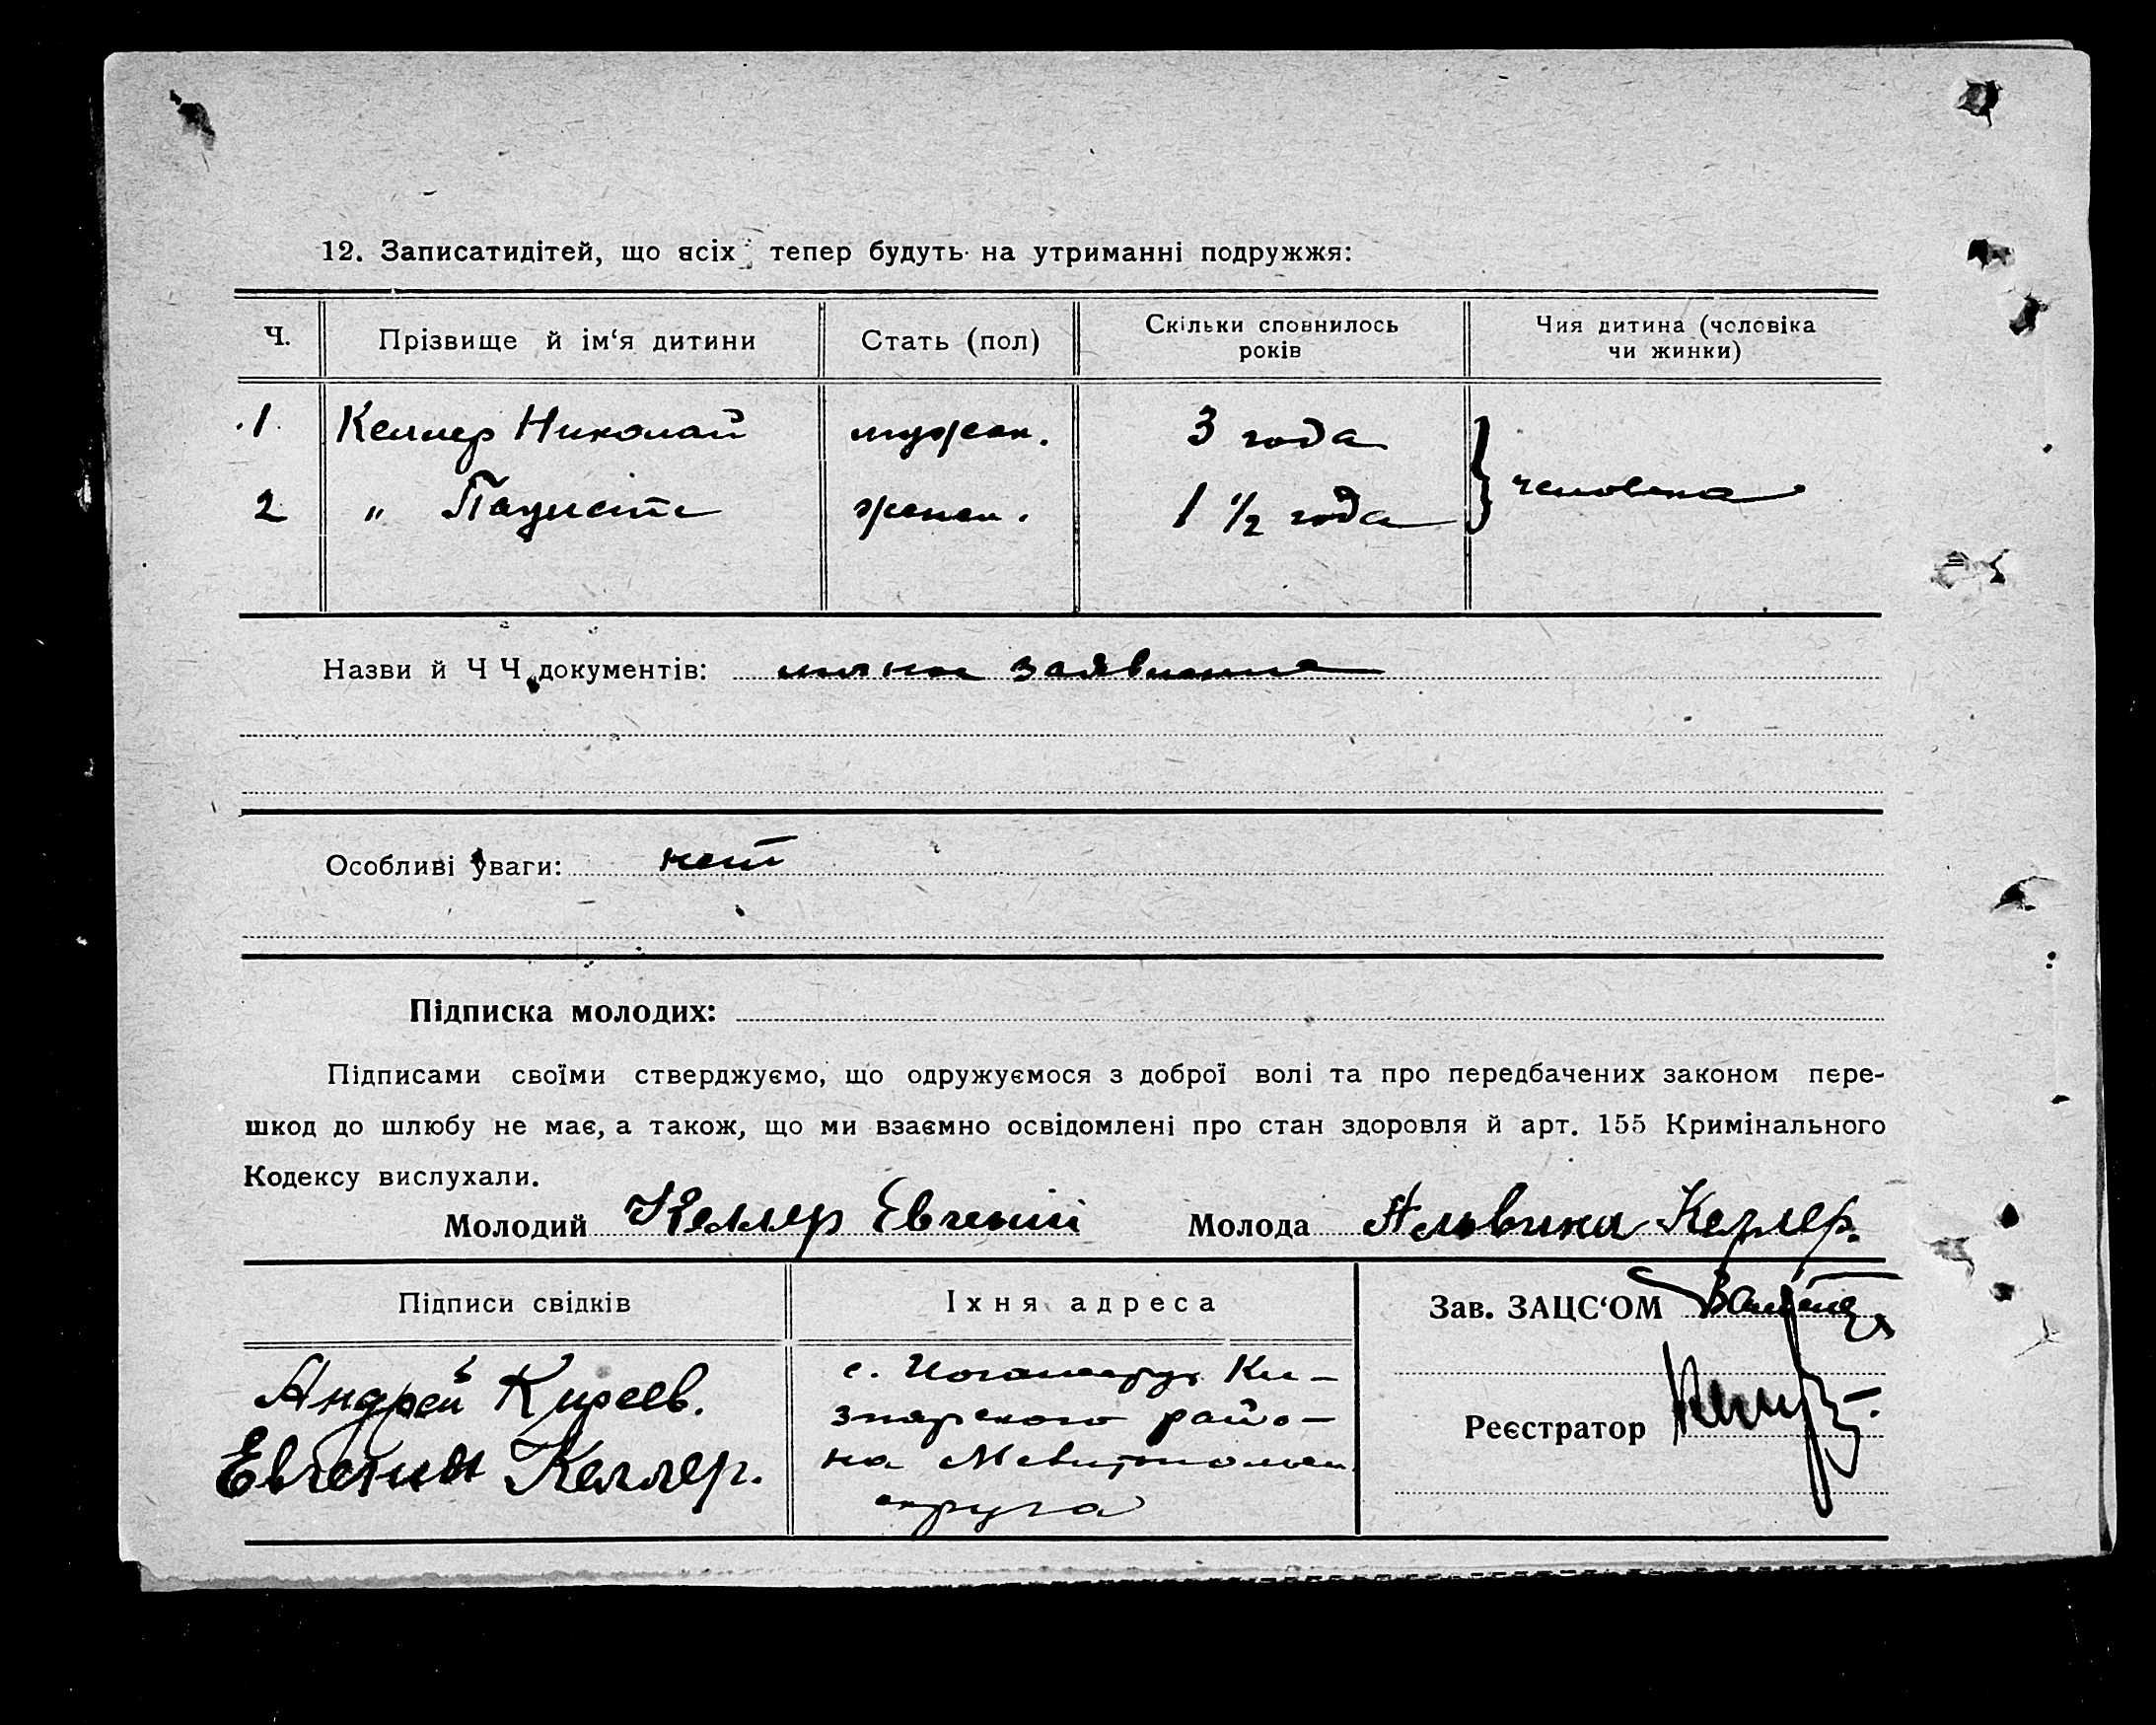 12. Записатидітей, що всіх тепер будуть на утриманні подружжя:
Ч. Прізвище й ім‘я дитини Стать (пол) Скільки сповнилось років Чия дитина (чоловіка чи жинки)
1. Келлер Николай мужск. 3 года
2 " женск. 1 1/2 года человека
Назви й Ч Ч документів: заявление
Особливі уваги: нет
Підписка молодих:
Підписами своїми стверджуємо, що одружуємося з доброї волі та про передбачених законом пере-
шкод до шлюбу не має, а також, що ми взаємно освідомлені про стан здоровля й арт. 155 Кримінального
Кодексу вислухали.
Молодий Келлер Евгений Молода Альвина Келлер.
Підписи свідків Їхня адреса Зав. ЗАЦС‘ОМ
Андрей Киреев. с. Ки-
Евгения Келлер. райо-
Реєстратор
на Мелитопольск.
округа